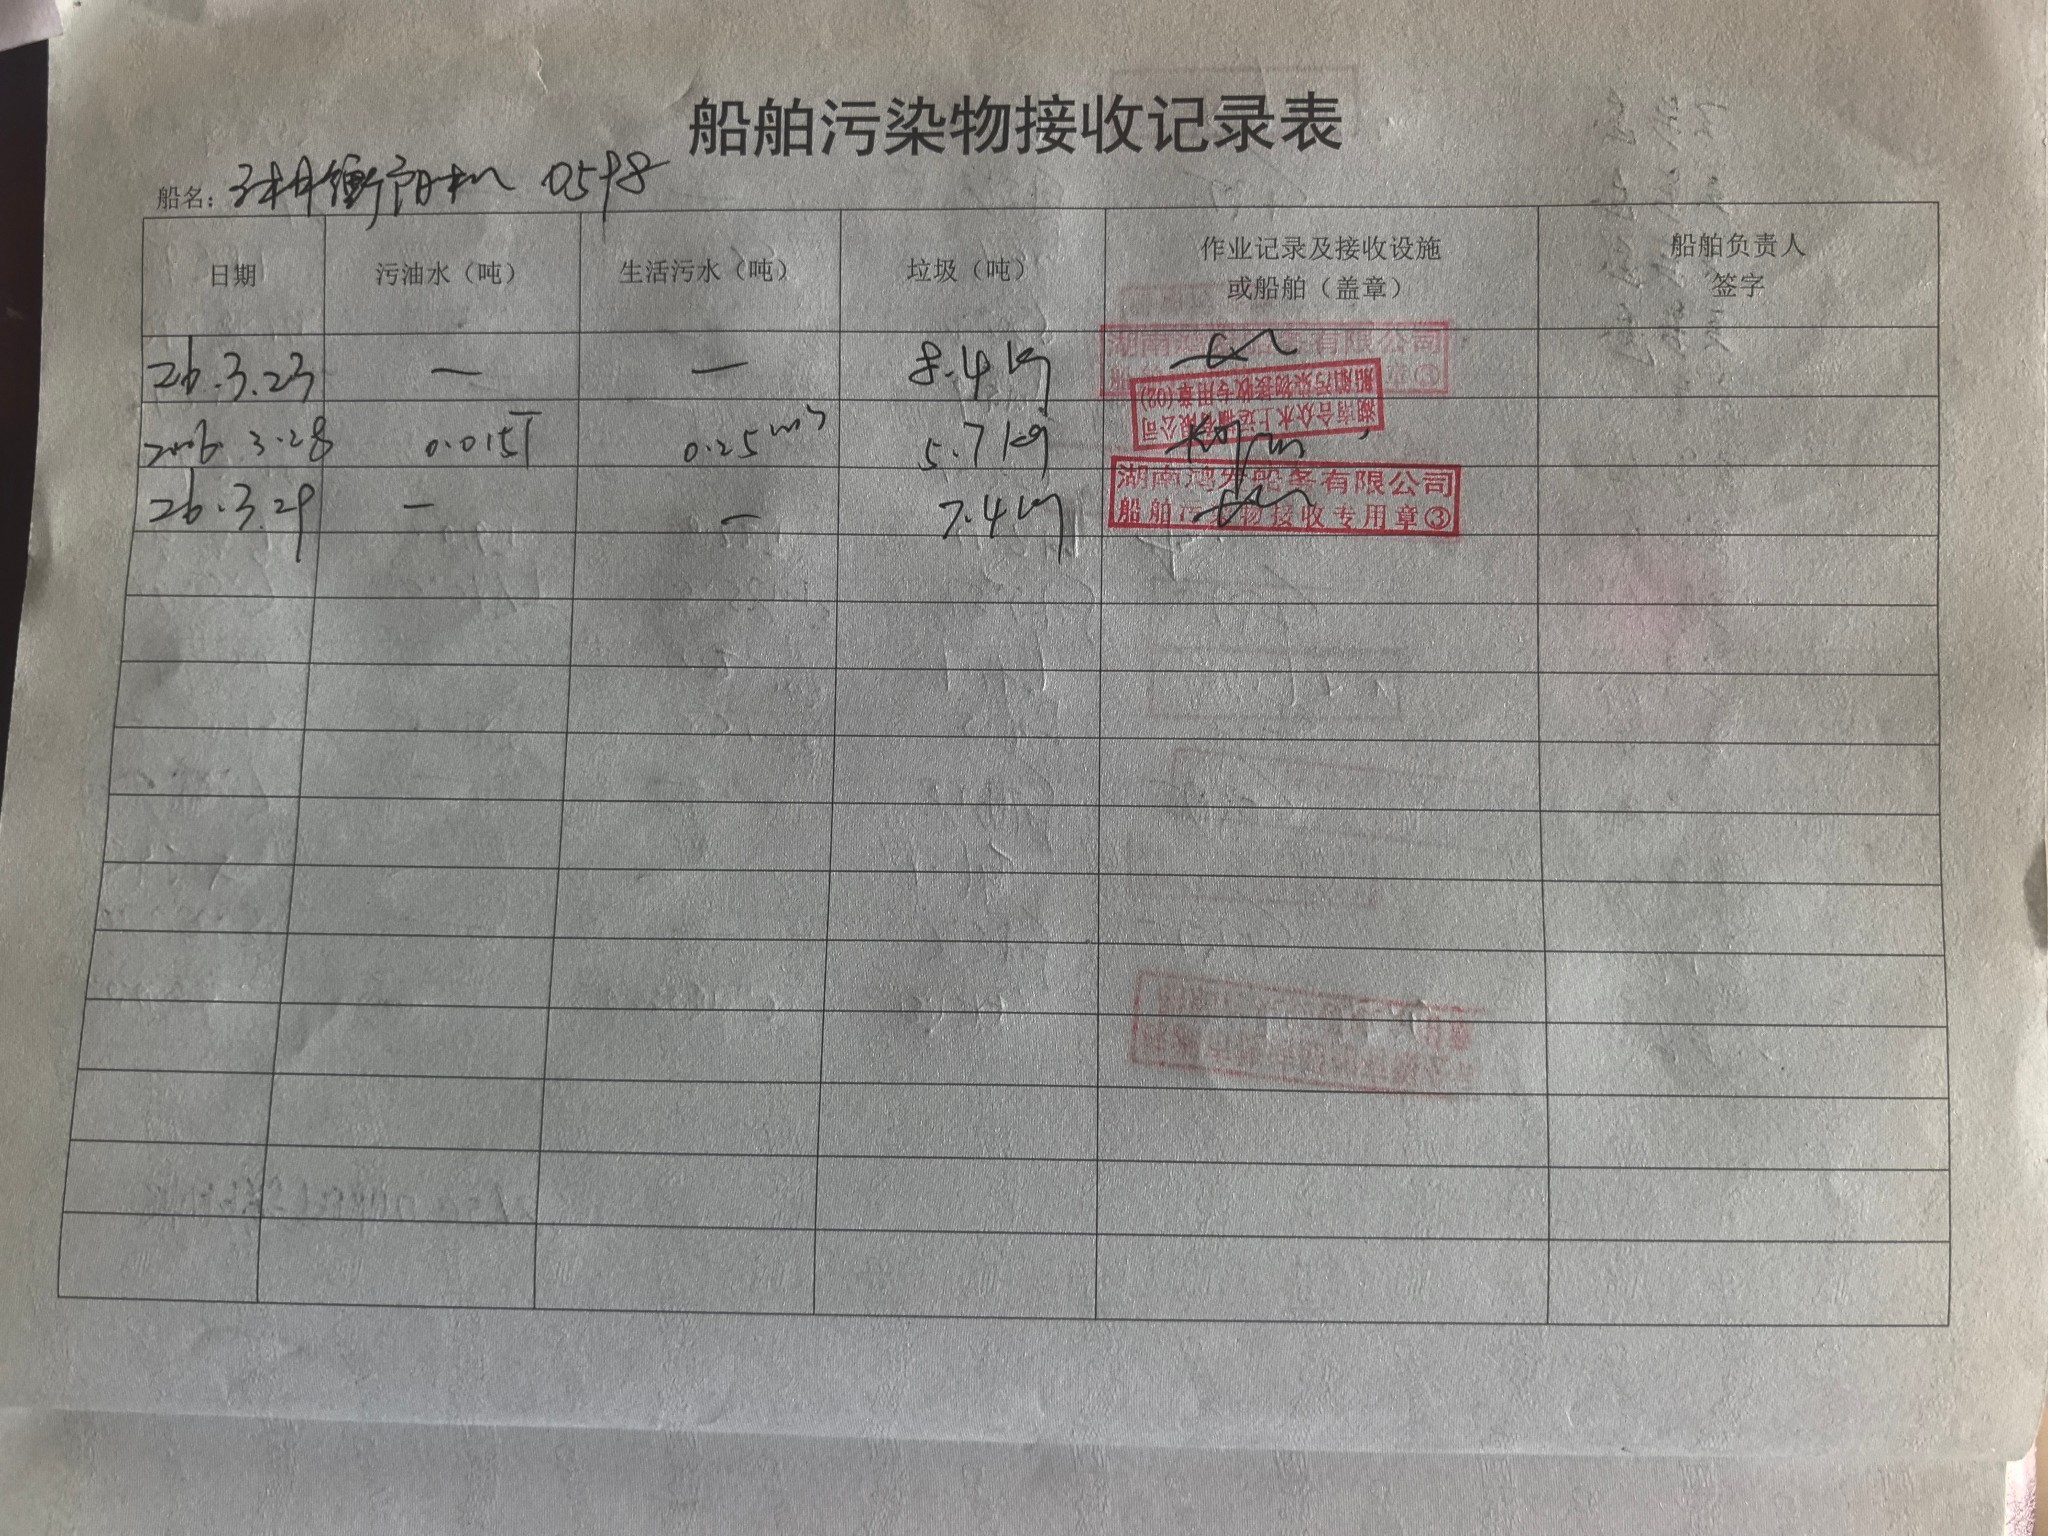 船舶污染物接收记录表
船名: 衡阳机 0598
日期 污油水（吨） 生活污水（吨） 垃圾（吨） 作业记录及接收设施或船舶（盖章） 船舶负责人签字
26.3.23 — — 8.4kg
湖南鸿发船务有限公司
船舶污染物接收专用章③
2026.3.28 0.015T 0.25m³ 5.7kg
湖南合众水上运输有限公司
船舶污染物接收专用章(02)
26.3.29 — — 7.4kg
湖南鸿发船务有限公司
船舶污染物接收专用章③